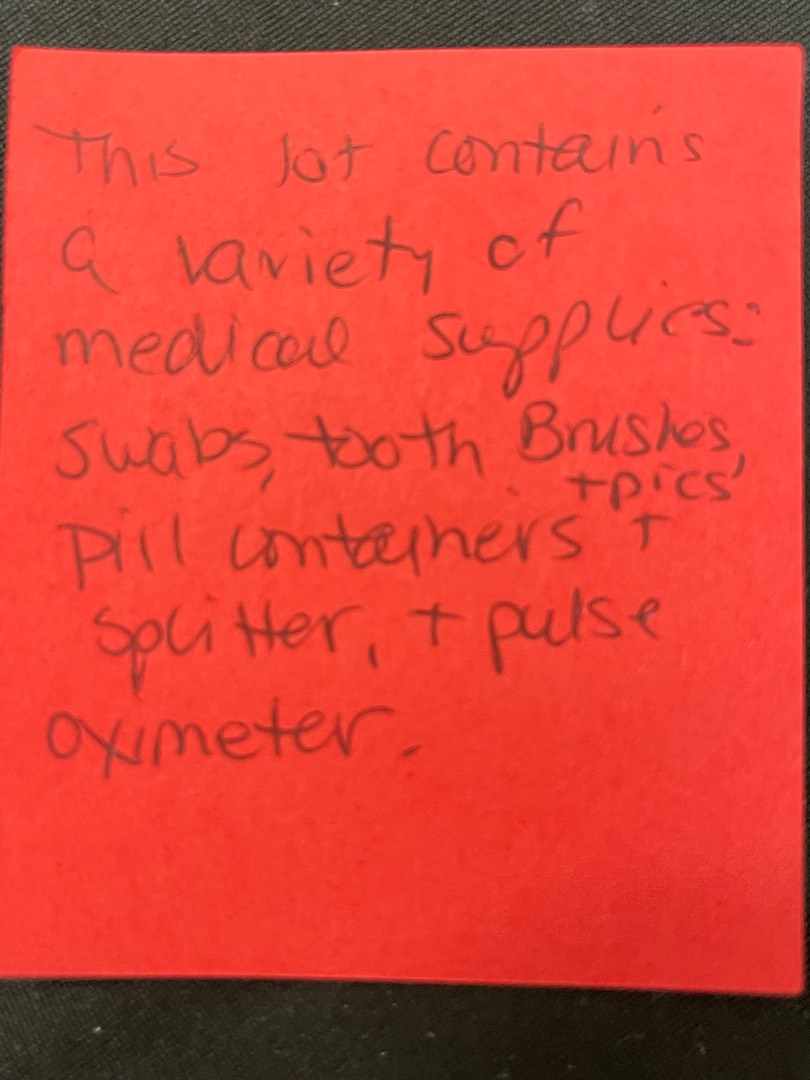 This lot contains
a variety of
medical supplies:
swabs, tooth Brushes,
+ pics
pill containers +
splitter, + pulse
oximeter.